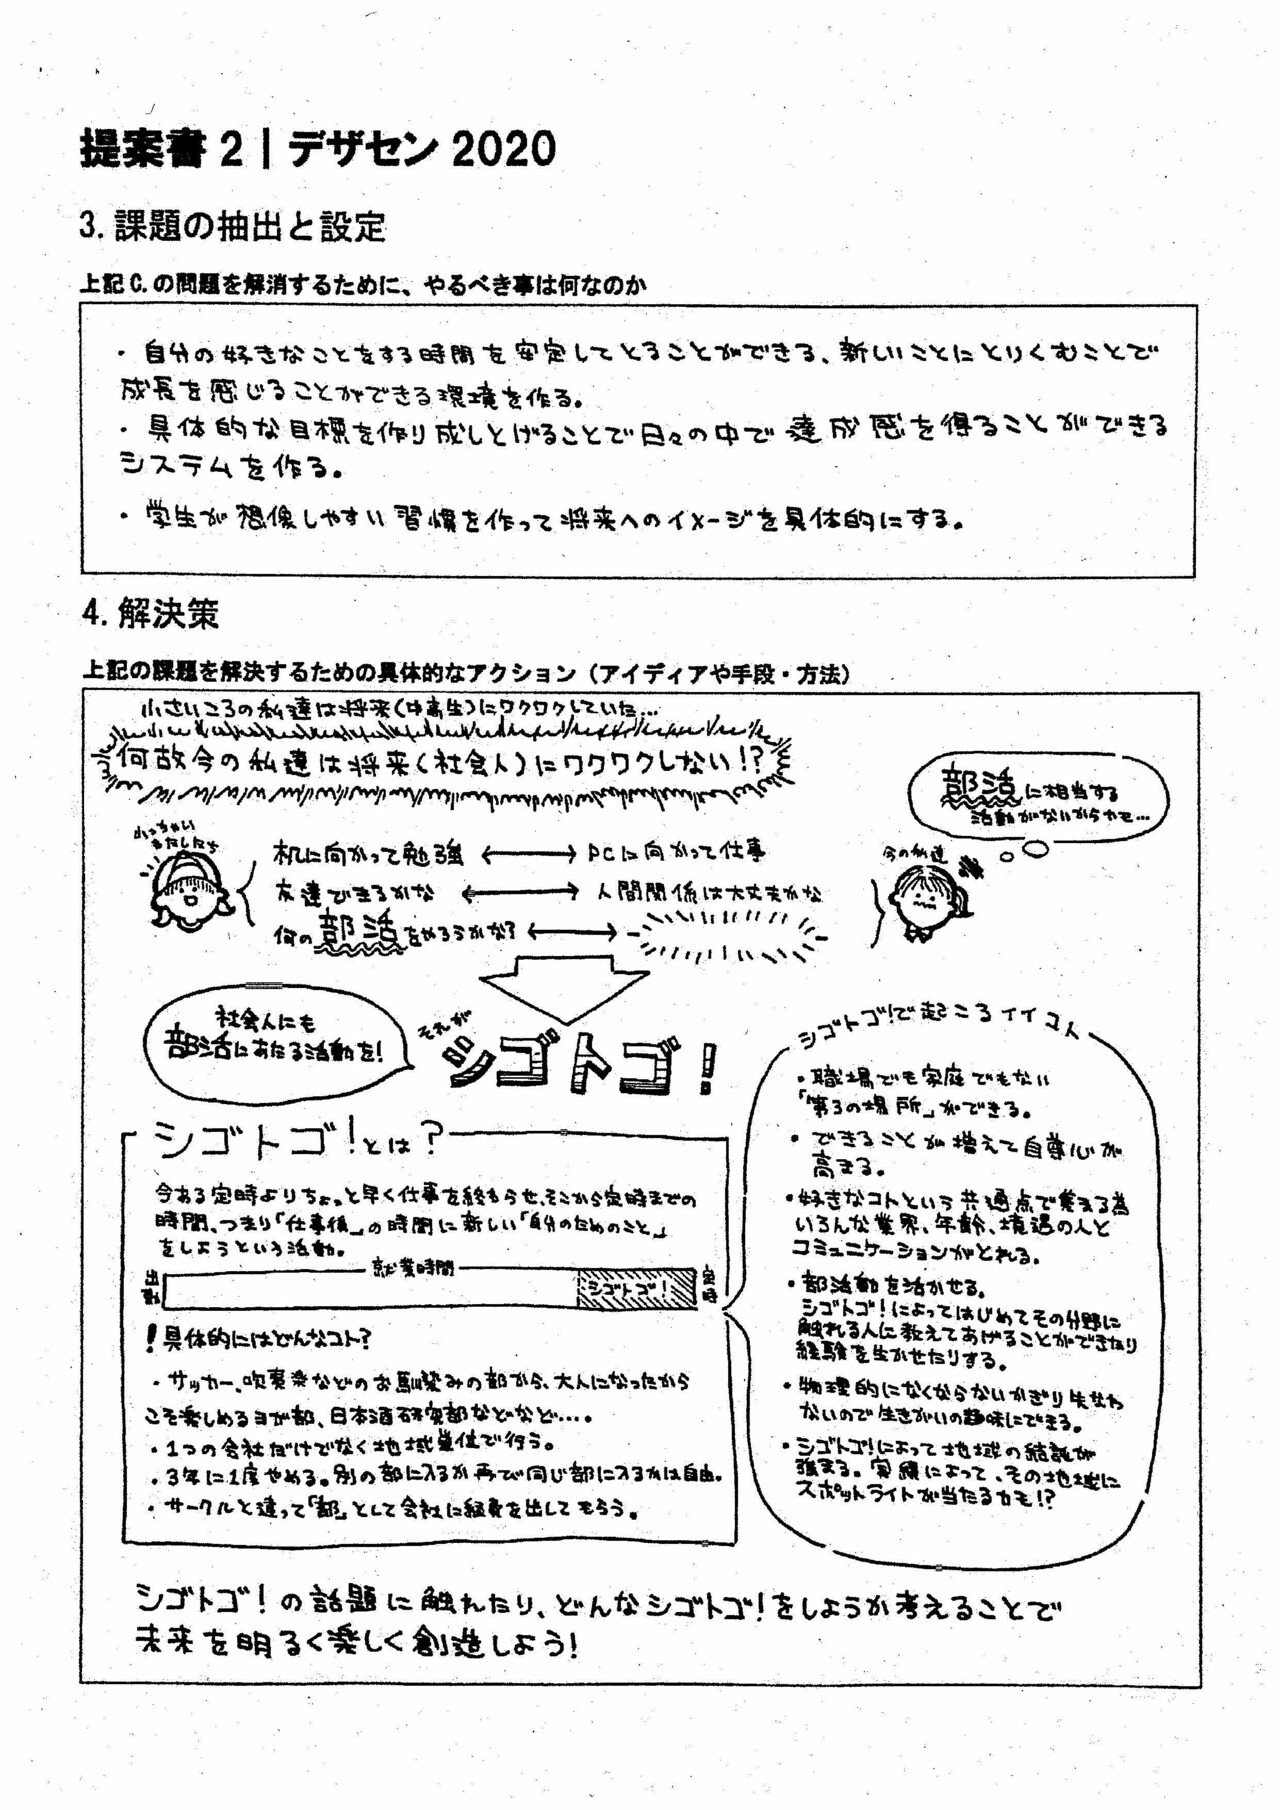 提案書 2 | デザセン 2020
3. 課題の抽出と設定
上記 C. の問題を解消するために、やるべき事は何なのか
・自分の好きなことをする時間を安定してとることができる、新しいことにとりくむことで
成長を感じることができる環境を作る。
・具体的な目標を作り成しとげることで日々の中で達成感を得ることができる
システムを作る。
・学生が想像しやすい習慣を作って将来へのイメージを具体的にする。
4. 解決策
上記の課題を解決するための具体的なアクション（アイディアや手段・方法）
小さいころの私達は将来(中高生)にワクワクしていた…
何故今の私達は将来(社会人)にワクワクしない!?
部活に相当する
活動がないからかも…
ちっちゃい
わたしたち
今の私達
机に向かって勉強 ⟷ PCに向かって仕事
友達できるかな ⟷ 人間関係は大丈夫かな
何の部活をやろうかな? ⟷
社会人にも
部活にあたる活動を!
それが
シゴトゴ!
シゴトゴ!とは?
今ある定時よりちょっと早く仕事を終わらせ、そこから定時までの
時間、つまり「仕事後」の時間に新しい「自分のためのこと」
をしようという活動。
出勤 就業時間 シゴトゴ! 定時
!具体的にはどんなコト?
・サッカー、吹奏楽などのお馴染みの部から、大人になったから
こそ楽しめるヨガ部、日本酒研究部などなど…。
・1つの会社だけでなく地域単位で行う。
・3年に1度やめる。別の部に入るか再び同じ部に入るかは自由。
・サークルと違って「部」として会社に経費を出してもらう。
シゴトゴ!で起こるイイコト
・職場でも家庭でもない
「第3の場所」ができる。
・できることが増えて自尊心が
高まる。
・好きなコトという共通点で集まる為
いろんな業界、年齢、境遇の人と
コミュニケーションがとれる。
・部活動を活かせる。
シゴトゴ!によってはじめてその分野に
触れる人に教えてあげることができたり
経験を生かせたりする。
・物理的になくならないかぎり失なわ
ないので生きがいの趣味にできる。
・シゴトゴ!によって地域の結託が
強まる。実績によって、その地域に
スポットライトが当たるカモ!?
シゴトゴ!の話題に触れたり、どんなシゴトゴ!をしようか考えることで
未来を明るく楽しく創造しよう!